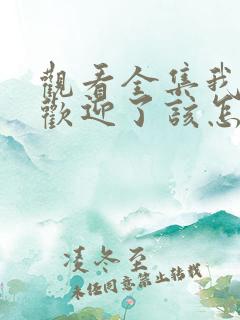 觀看全集我
歡迎了該怎
凌冬至
未任同意禁止转载